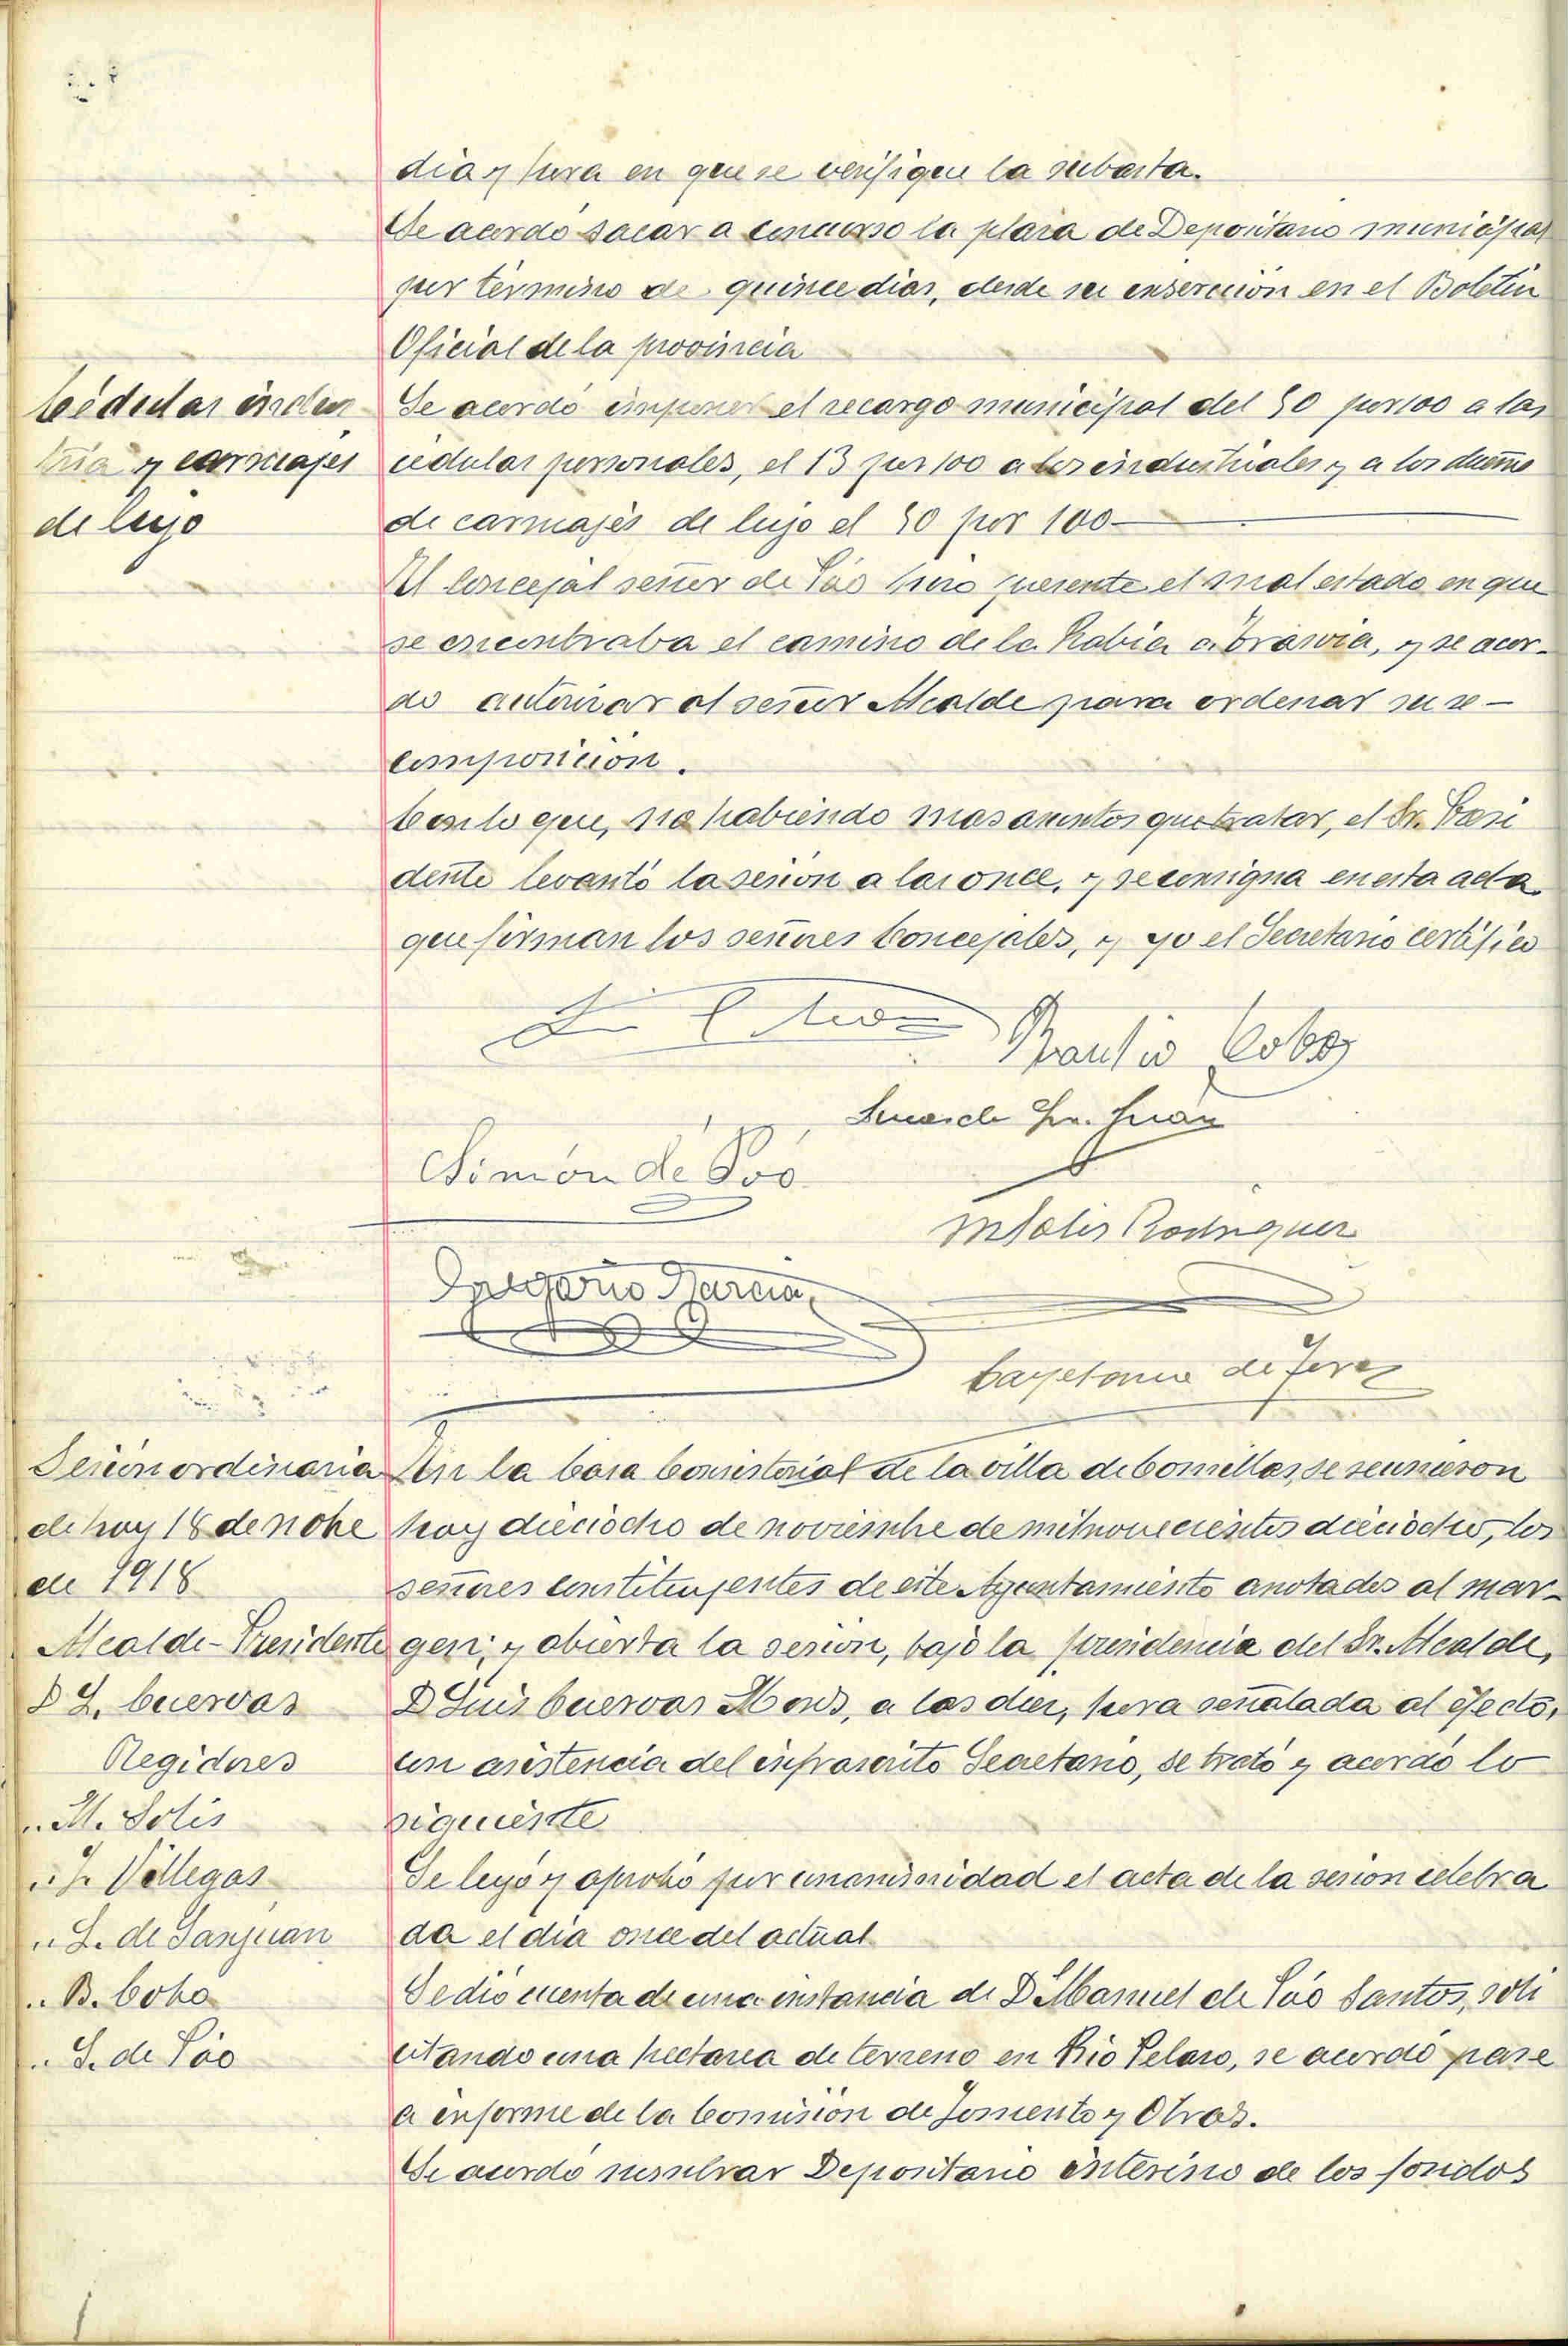 dia y hora en que se verifique la subasta.
Se acordó sacar a concurso la plaza de Depositario municipal
por término de quince dias, desde su enserción en el Boletín
Oficial de la provincia
Cédulas indus
tria y carruajes
de lujo
Se acordó imponer el recargo municipal del 50 por 100 a las
cédulas personales, el 13 por 100 a los industriales y a los dueños
de carruajes de lujo el 50 por 100
El Concejal señor de Póo hizo presente el mal estado en que
se encontraba el camino de la Rabia a, y se acor-
dó autorizar al señor Alcalde para ordenar su re-
composición.
Con lo que, no habiendo mas asuntos que tratar, el Sr. Presi
dente levantó la sesión a las once, y se consigna en esta acta
que firman los señores Concejales, y yo el Secretario certifico
Braulio Cobo
San Juan
Simón de Póo
M Solis Rodriguez
Gregorio Garcia
Cayetano de Jerez
Sesión ordinaria
de hoy 18 de nobe
de 1918
Alcalde-Presidente
D L. Cuervas
Regidores
" M. Solis
" J. Villegas
" L. de Sanjuan
" B. Cobo
" S. de Póo
En la Casa Consistorial de la villa de Comillas, se reunieron
hoy dieciocho de noviembre de mil novecientos dieciocho, los
señores constituyentes de este Ayuntamiento anotados al mar-
gen; y abierta la sesión, bajo la presidencia del Sr. Alcalde,
D Luis Cuervas Mons, a las diez, hora señalada al efecto,
con asistencia del infrascrito Secretario, se trató y acordó lo
siguiente
Se leyó y aprobó por unanimidad el acta de la sesión celebra
da el dia once del actual
Se dió cuenta de una instancia de D Manuel de Póo Santos, soli
citando una hectarea de terreno en Rio Peloro, se acordó pase
a informe de la Comisión de Fomento y Obras.
Se acordó nombrar Depositario interino de los fondos